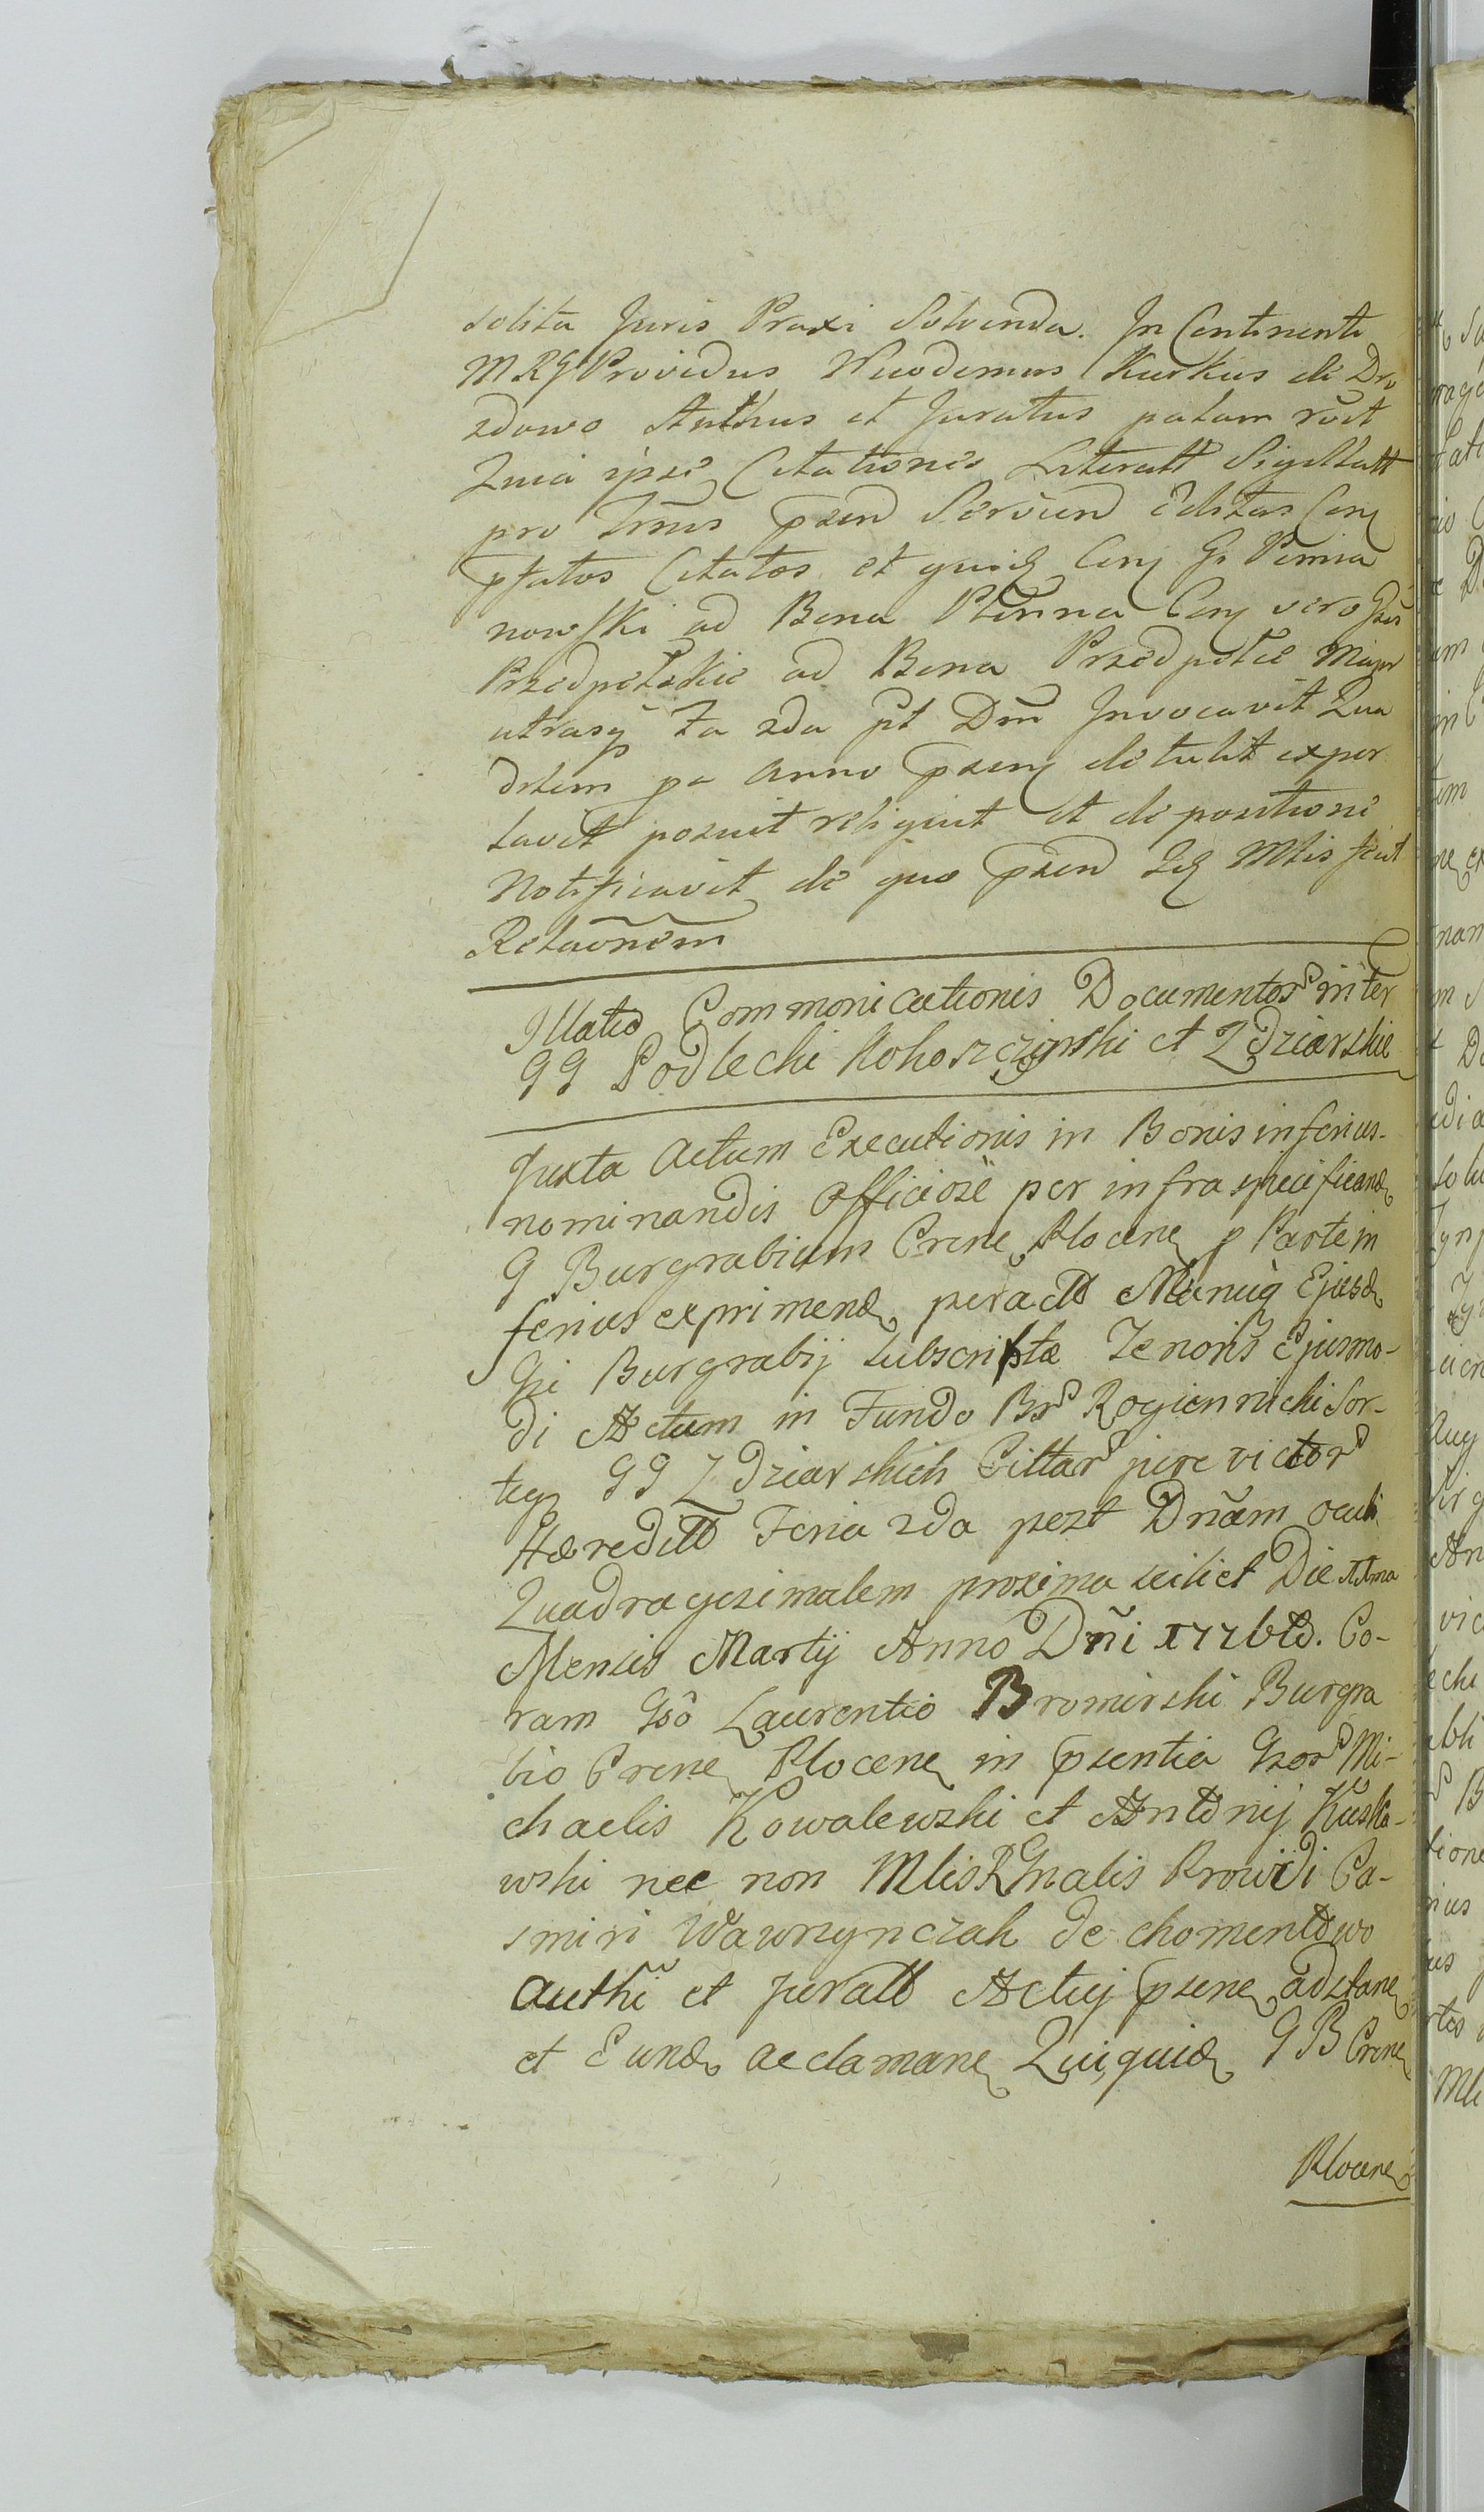 solita Juris Praxi Solvenda. In Continenti
MRG Providus Nicodemus Kurkus de Dro
zdowo Authus et Juratus palam rõit
Quia ipse Citationes Literatt Sigillatt
pro Tmis psen Servien editas Con
pfatos Citatos et quid Con G Pemia
nowski ad Bona Plenna Con vero Gsos
Przedpelskie ad Bona Przedpelce Major
utrasq Fa 2da pt Dm Invocavit Qua
dr̃lem pa anno psen detulit expor
tavit posuit reliquit et de positione
Notificavit de quo psen sũ Mtis fecit
Rela͠onem
Illatio Commonicationis Documentor inter
GG Podlecki Kokoszczynski et Zdziarskie
Juxta Actum Executionis in Bonis inferius-
nominandis Officiose per infra specificand
G Burgrabium Crene Plocene p Partem
ferius exprimend peractt Manuq Ejusd
Gsi Burgrabij subscriptæ Tenoris Ejusmo-
di Actum in Fundo Br Rogiennichi Sor-
teq GG Zdziarskich Cittar jure victor
Hæreditt Feria 2da post Dnãm oculi
Quadragesimalem proxima scilicet Die XIma
Mensis Martij Anno Dñi 1776to. Co-
ram Gsô Laurentio Bromirski Burgra
bio Crene Plocene in psentia Gsor Mi-
chaelis Kowalewski et Antonij Kuska-
wski nec non Mlis RGnalis Prowidi Ca-
smiri Wawrzynczak de chomentowo
Authi et Juratt Actuj psene adstane
et Eund acclamane Qui,quid GB Crene
Plocene